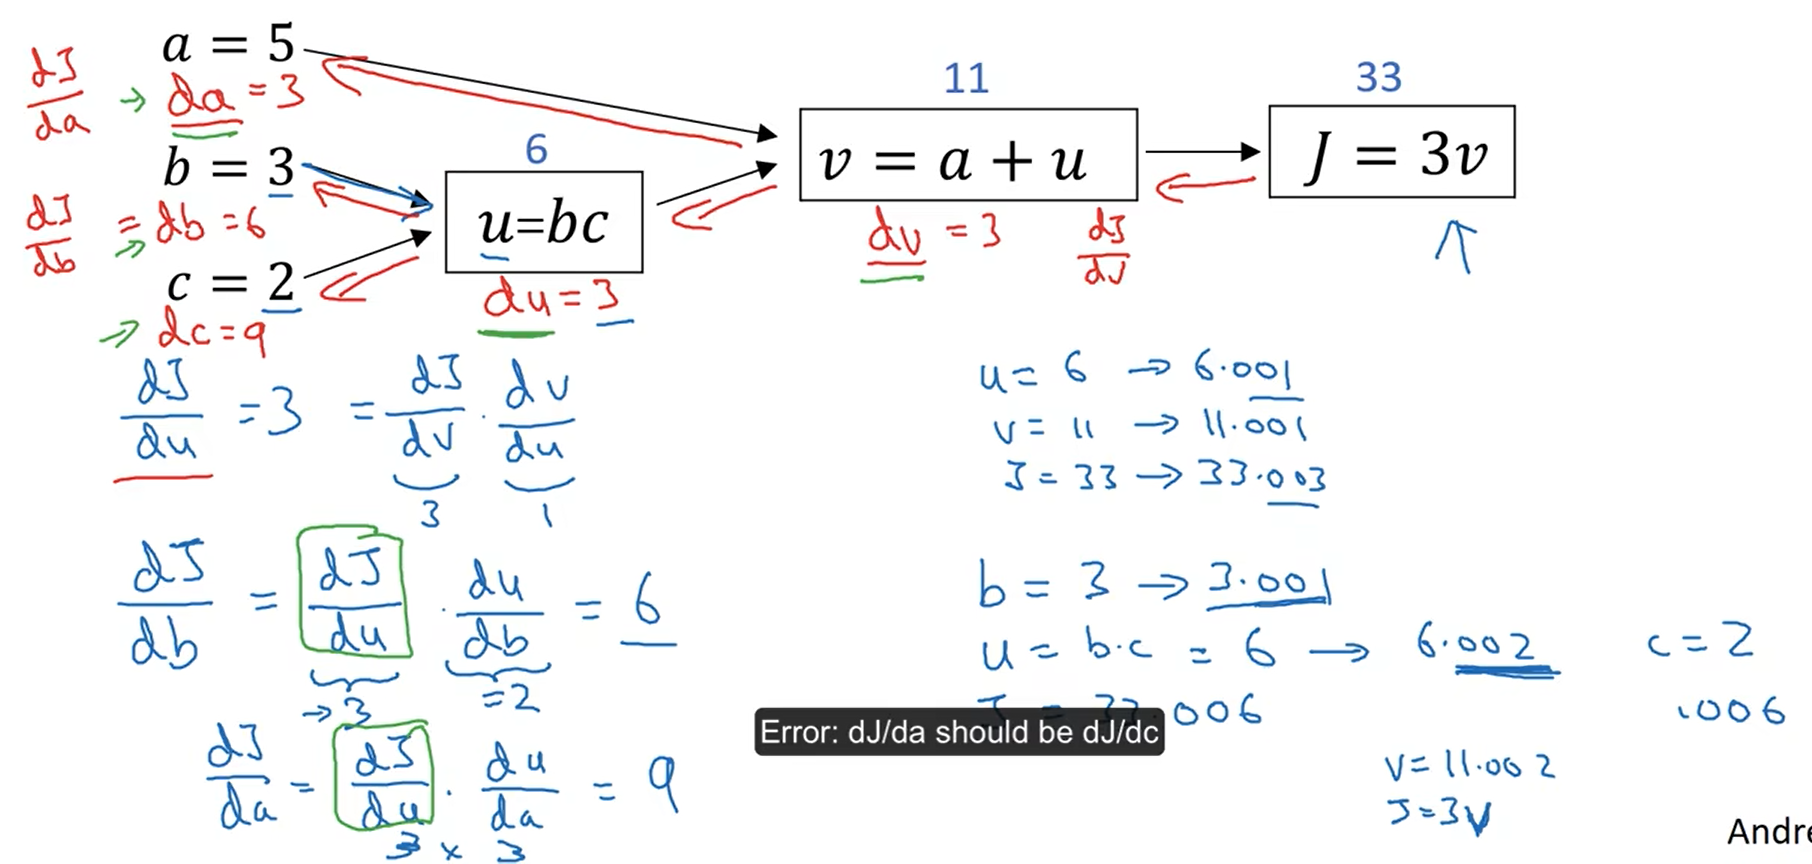 a = 5
dJ/da → da = 3
b = 3
dJ/db = db = 6
→
c = 2
→ dc = 9
6
u=bc
du = 3
11
v = a + u
dv = 3 dJ/dv
33
J = 3v
dJ/du = 3 = dJ/dv · dv/du
3 1
dJ/db = dJ/du · du/db = 6
→ 3 = 2
dJ/da = dJ/du · du/da = 9
3 x 3
u = 6 → 6.001
v = 11 → 11.001
J = 33 → 33.003
b = 3 → 3.001
u = b·c = 6 → 6.002 c = 2
J = 33.006 .006
Error: dJ/da should be dJ/dc
v = 11.002
J = 3v
Andre